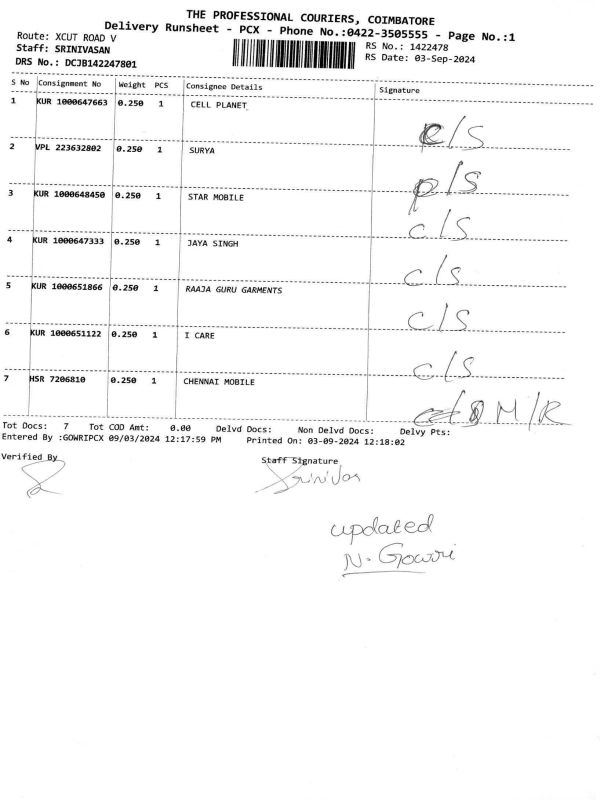 THE PROFESSIONAL COURIERS, COIMBATORE
Delivery Runsheet - PCX - Phone No.:0422-3505555 - Page No.:1
Route: XCUT ROAD V
RS No.: 1422478
Staff: SRINIVASAN
RS Date: 03-Sep-2024
DRS No.: DCJB142247801
S No Consignment No Weight PCS Consignee Details Signature
1 KUR 1000647663 0.250 1 CELL PLANET c/s
2 VPL 223632802 0.250 1 SURYA p/s
3 KUR 1000648450 0.250 1 STAR MOBILE c/s
4 KUR 1000647333 0.250 1 JAYA SINGH c/s
5 KUR 1000651866 0.250 1 RAAJA GURU GARMENTS c/s
6 KUR 1000651122 0.250 1 I CARE c/s
7 HSR 7206810 0.250 1 CHENNAI MOBILE M/R
Tot Docs: 7 Tot COD Amt: 0.00 Delvd Docs: Non Delvd Docs: Delvy Pts:
Entered By :GOWRIPCX 09/03/2024 12:17:59 PM Printed On: 03-09-2024 12:18:02
Verified By Staff Signature
Srinivas
updated
N. Gowri